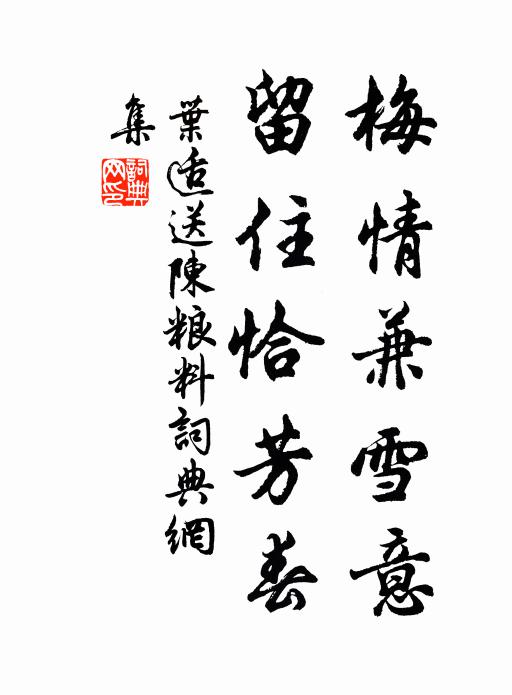 梅情兼雪意
留住恰芳春
葉适送陳粮料詞典網
集
詞典
网印